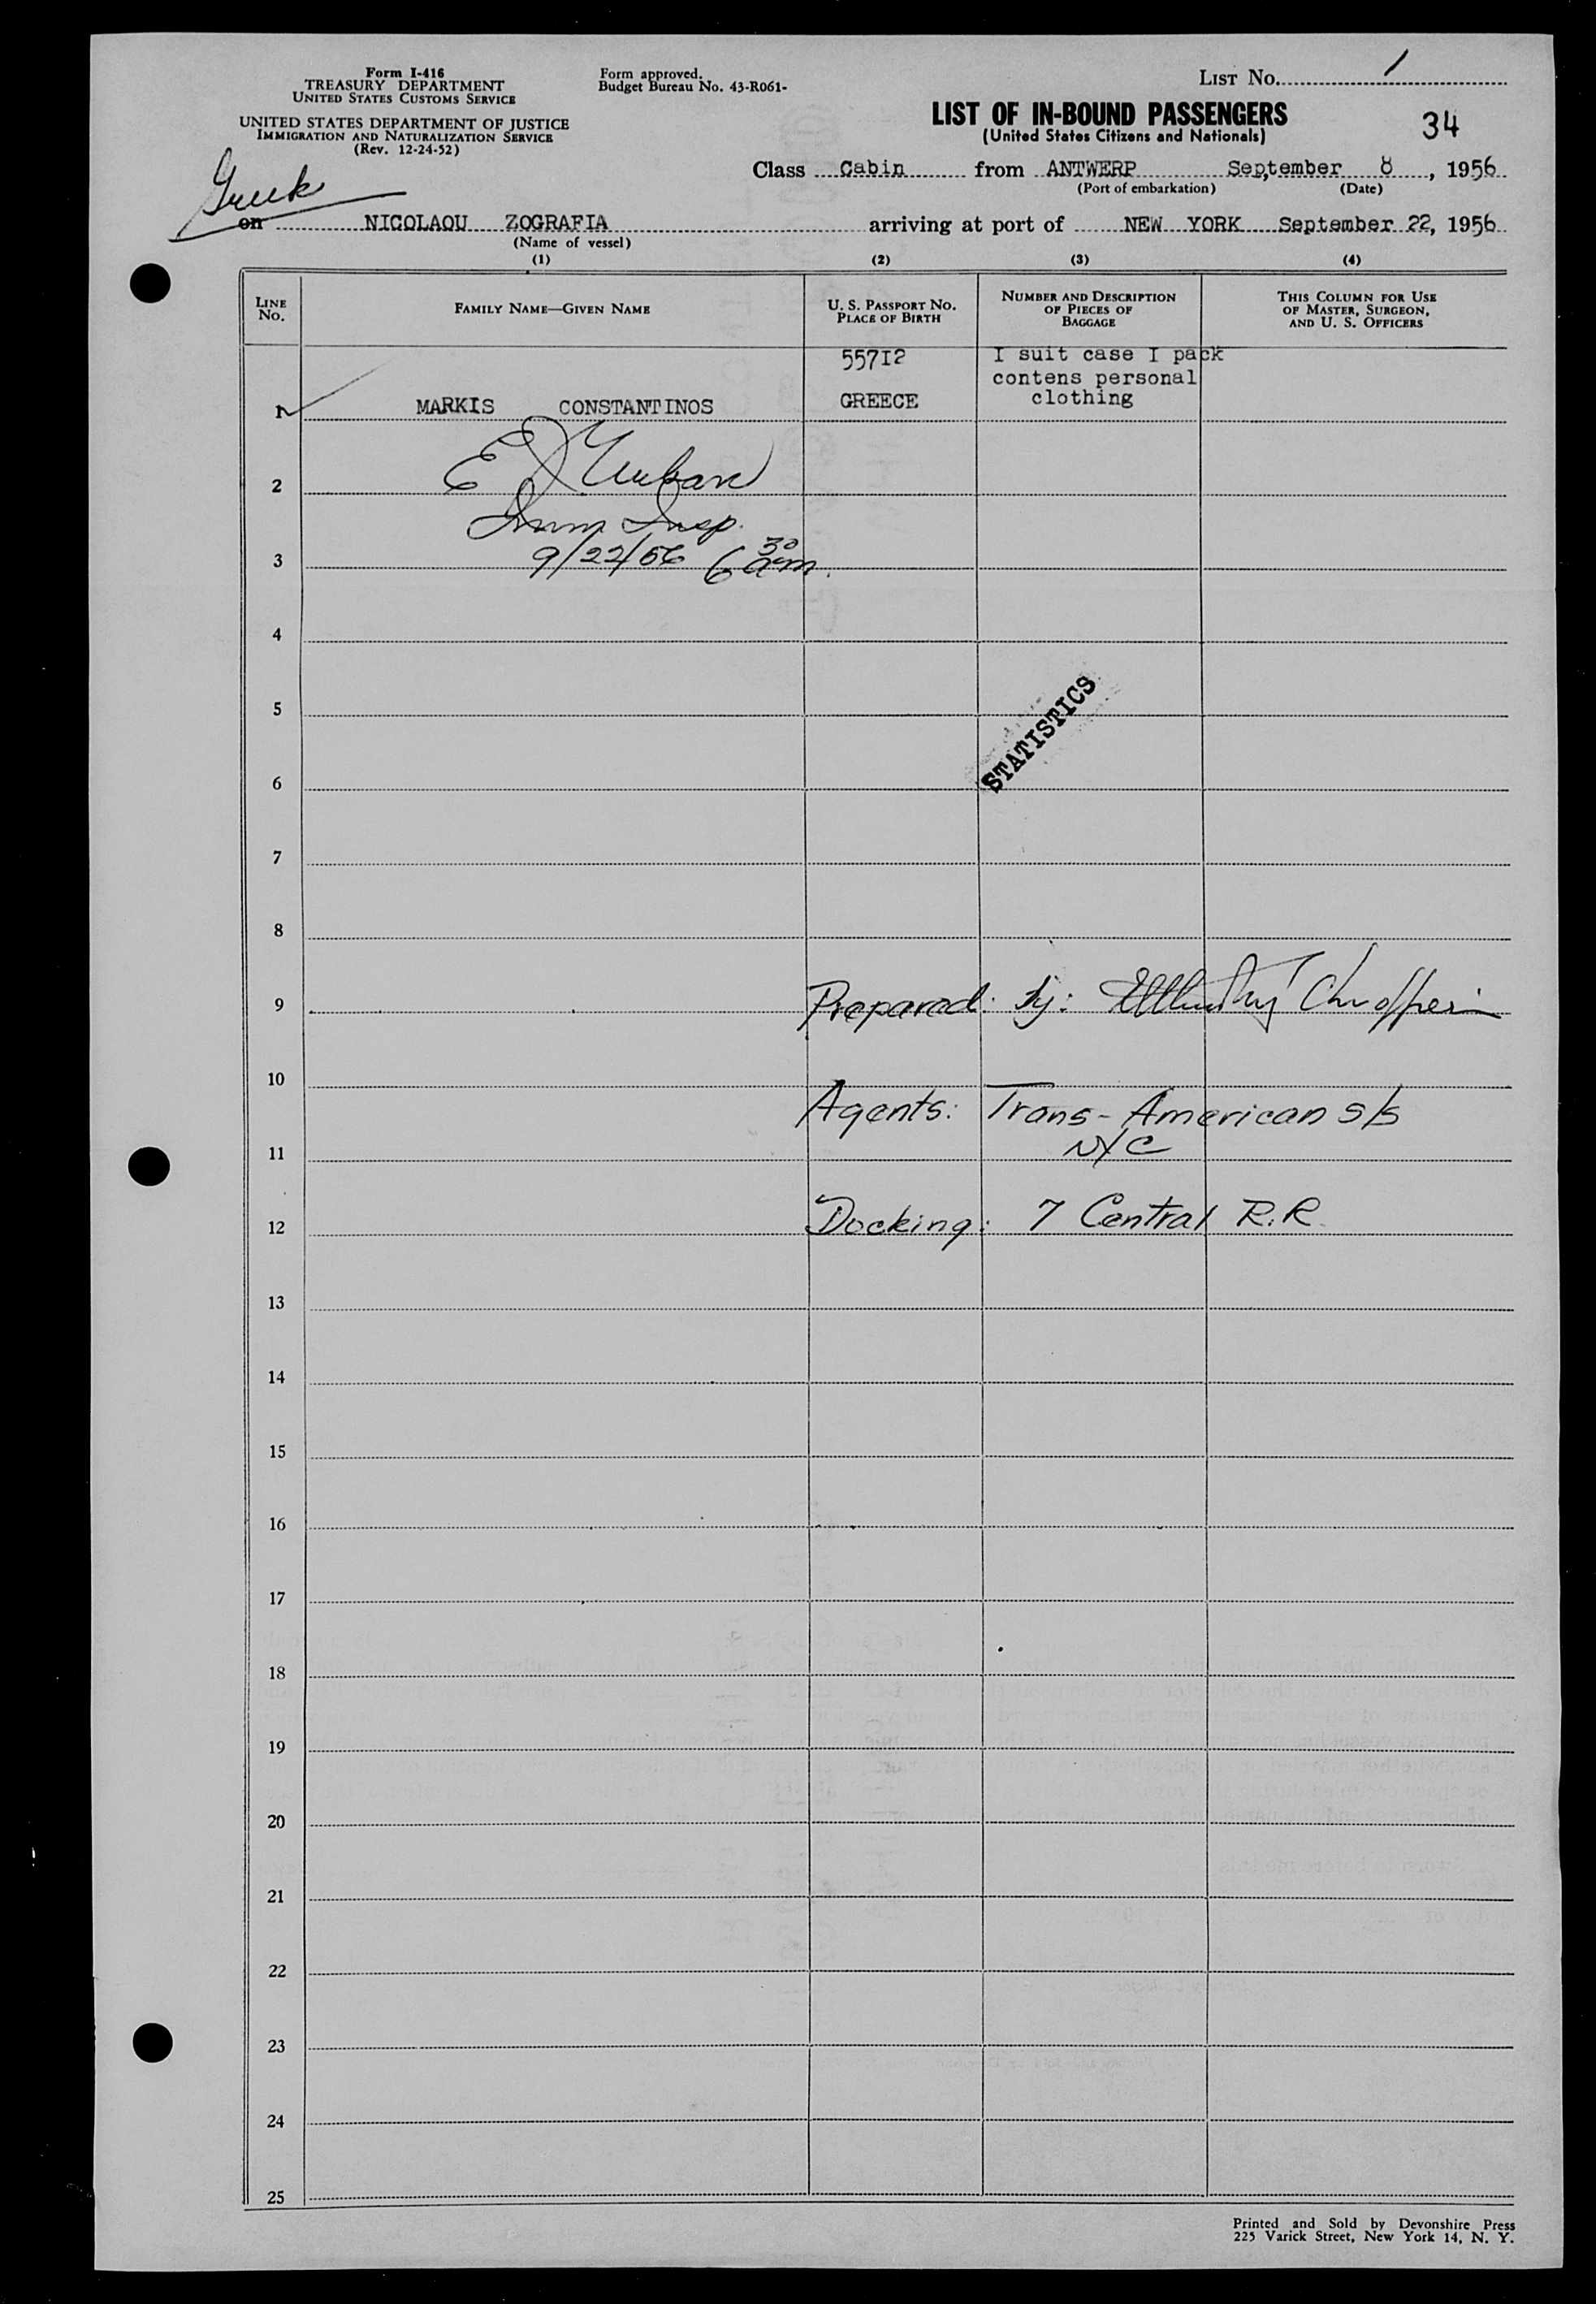 Form I-416
TREASURY DEPARTMENT
UNITED STATES CUSTOMS SERVICE
UNITED STATES DEPARTMENT OF JUSTICE
IMMIGRATION AND NATURALIZATION SERVICE
(Rev. 12-24-52)
Form approved.
Budget Bureau No. 43-R061-
LIST No. 1
LIST OF IN-BOUND PASSENGERS
(United States Citizens and Nationals)
34
Class Cabin from ANTWERP September 8, 1956
(Port of embarkation) (Date)
Greek
on NICOLAOU ZOGRAFIA arriving at port of NEW YORK September 22, 1956
(Name of vessel)
(1) (2) (3) (4)
LINE No. FAMILY NAME—GIVEN NAME U. S. PASSPORT No. PLACE OF BIRTH NUMBER AND DESCRIPTION OF PIECES OF BAGGAGE THIS COLUMN FOR USE OF MASTER, SURGEON, AND U. S. OFFICERS
557I2 I suit case I pack
contens personal
1 MARKIS CONSTANTINOS GREECE clothing
2 E
Imm Insp.
3 9/22/56 6 30 am.
4
5
STATISTICS
6
7
8
9 Prepared by:
10
Agents: Trans-American s/s
11 NYC
12 Docking: 7 Central R.R.
13
14
15
16
17
18
19
20
21
22
23
24
25
Printed and Sold by Devonshire Press
225 Varick Street, New York 14, N. Y.